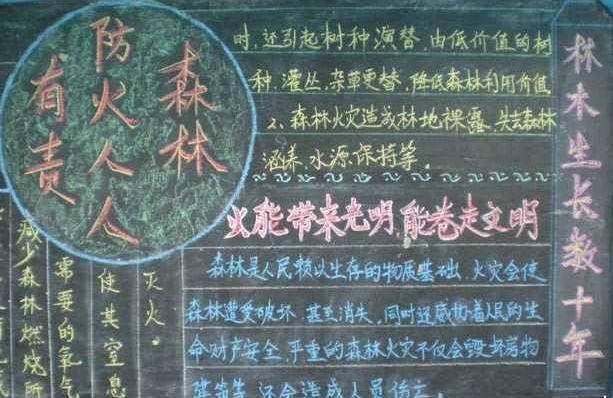 森林
防火人人
有责
时，还引起树种演替，由低价值的树
种、灌丛、杂草更替，降低森林利用价值
2、森林火灾造成林地裸露，失去森林
涵养水源保持等。
火能带来光明，能卷走文明
森林是人民赖以生存的物质基础，火灾会使
森林遭受破坏，甚至消失，同时还威胁着人民的生
命财产安全，严重的森林火灾不仅会毁坏房物
建筑等，还会造成人员伤亡。
林木生长数十年
灭火。
使其窒息
需要的氧气
减少森林燃烧所